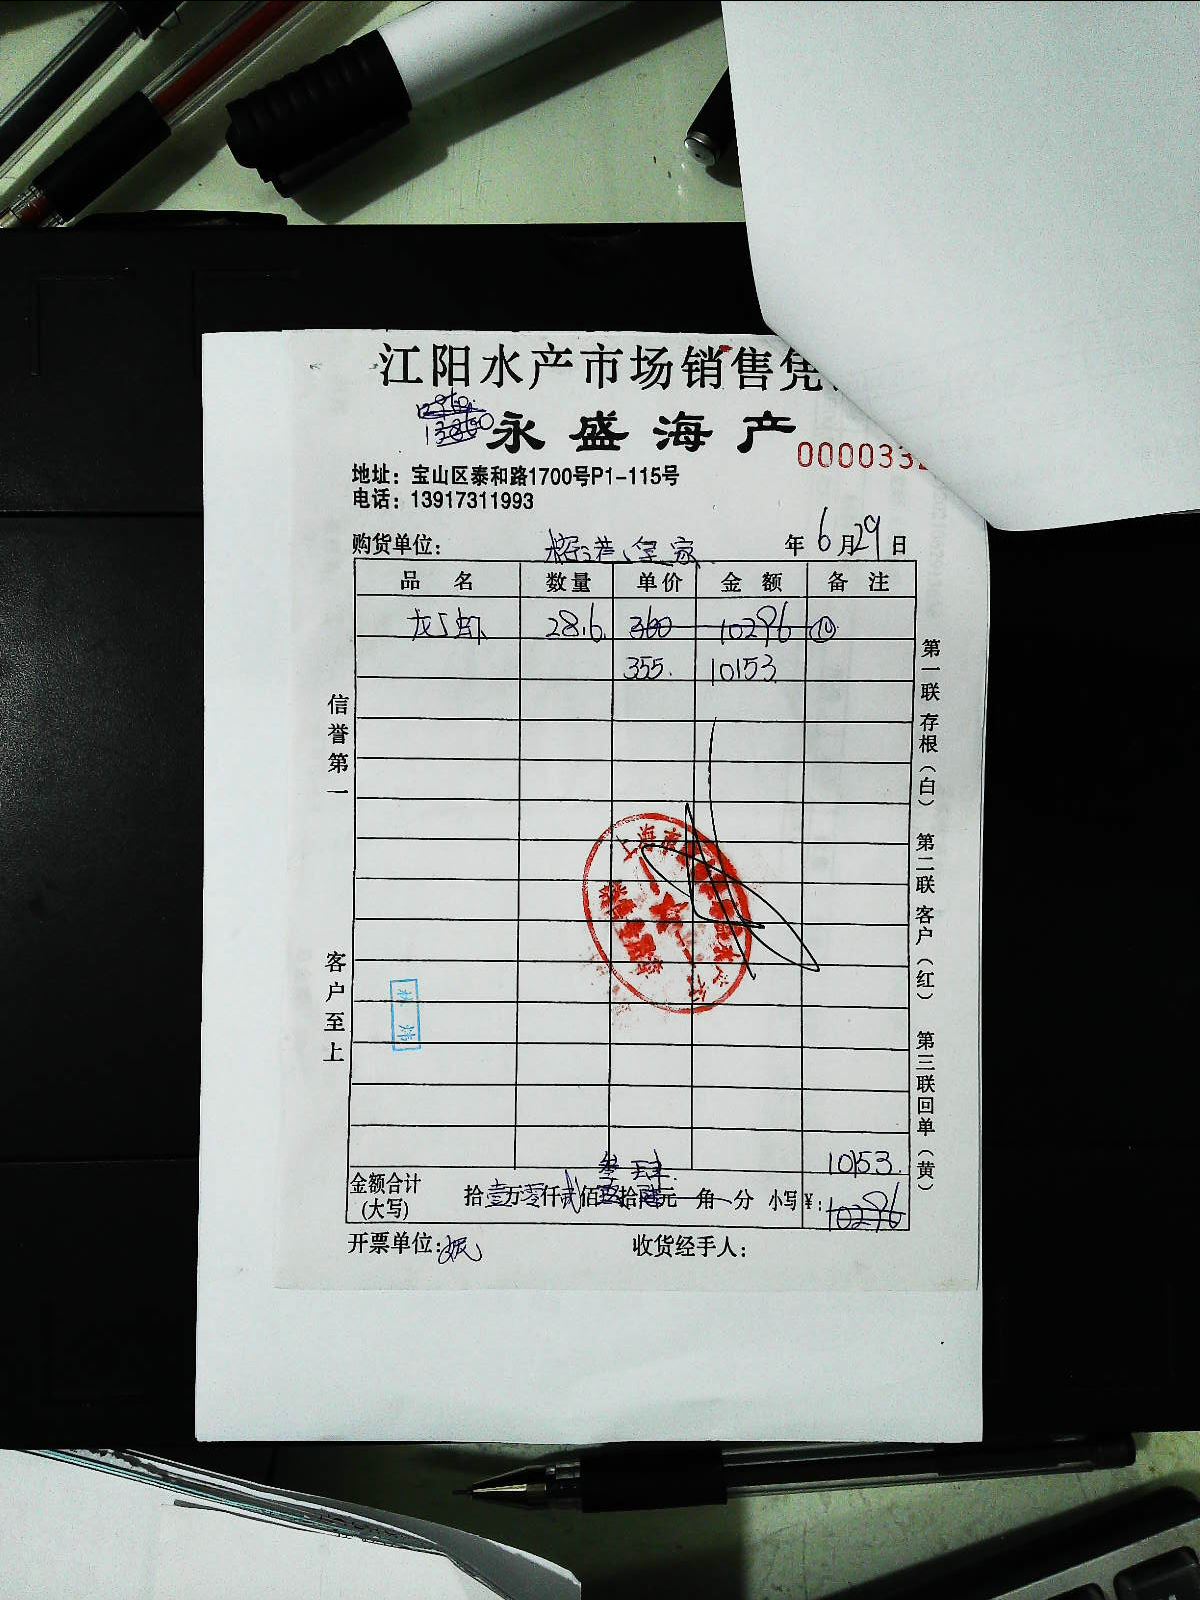 江阳水产市场销售凭
永盛海产
00003
地址：宝山区泰和路1700号P1-115号
电话：13917311993
购货单位： 皇家 年6月29日
品 名 数量 单价 金 额 备 注
龙虾 28.6 360 10296
355. 10153
信誉第一
客户至上
第一联 存根（白） 第二联 客户（红） 第三联 回单（黄）
10153.
金额合计
(大写)
拾壹万零仟贰佰 拾 元 角 分 小写¥：10296
开票单位： 收货经手人：